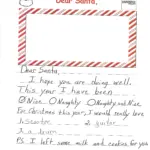 Dear Santa,
Dear Santa,
I hope you are doing well.
This year I have been
Nice Naughty Naughty and Nice
For Christmas this year, I would really love
a guitar
PS I left some milk and cookies for you